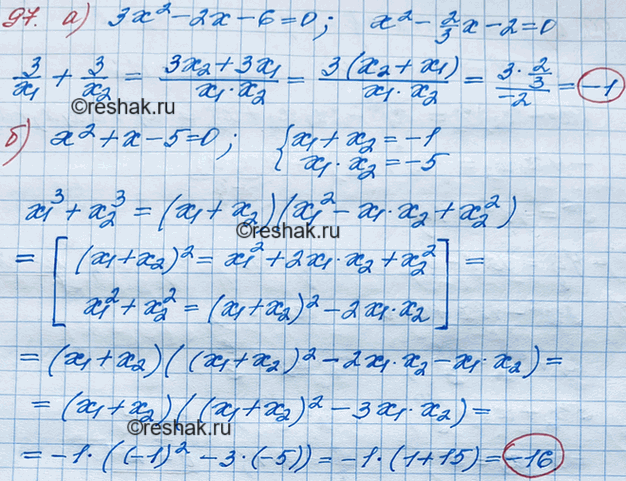 97. а) 3x² - 2x - 6 = 0; x² - 2/3 x - 2 = 0
3/x₁ + 3/x₂ = (3x₂ + 3x₁)/(x₁·x₂) = 3(x₂ + x₁)/(x₁·x₂) = (3·2/3)/(-2) = -1
©reshak.ru
б) x² + x - 5 = 0; { x₁ + x₂ = -1
x₁·x₂ = -5
x₁³ + x₂³ = (x₁ + x₂)(x₁² - x₁·x₂ + x₂²)
©reshak.ru
= [ (x₁ + x₂)² = x₁² + 2x₁·x₂ + x₂² ] =
x₁² + x₂² = (x₁ + x₂)² - 2x₁·x₂
= (x₁ + x₂)((x₁ + x₂)² - 2x₁·x₂ - x₁·x₂) =
= (x₁ + x₂)((x₁ + x₂)² - 3x₁·x₂) =
©reshak.ru
= -1·((-1)² - 3·(-5)) = -1·(1 + 15) = -16